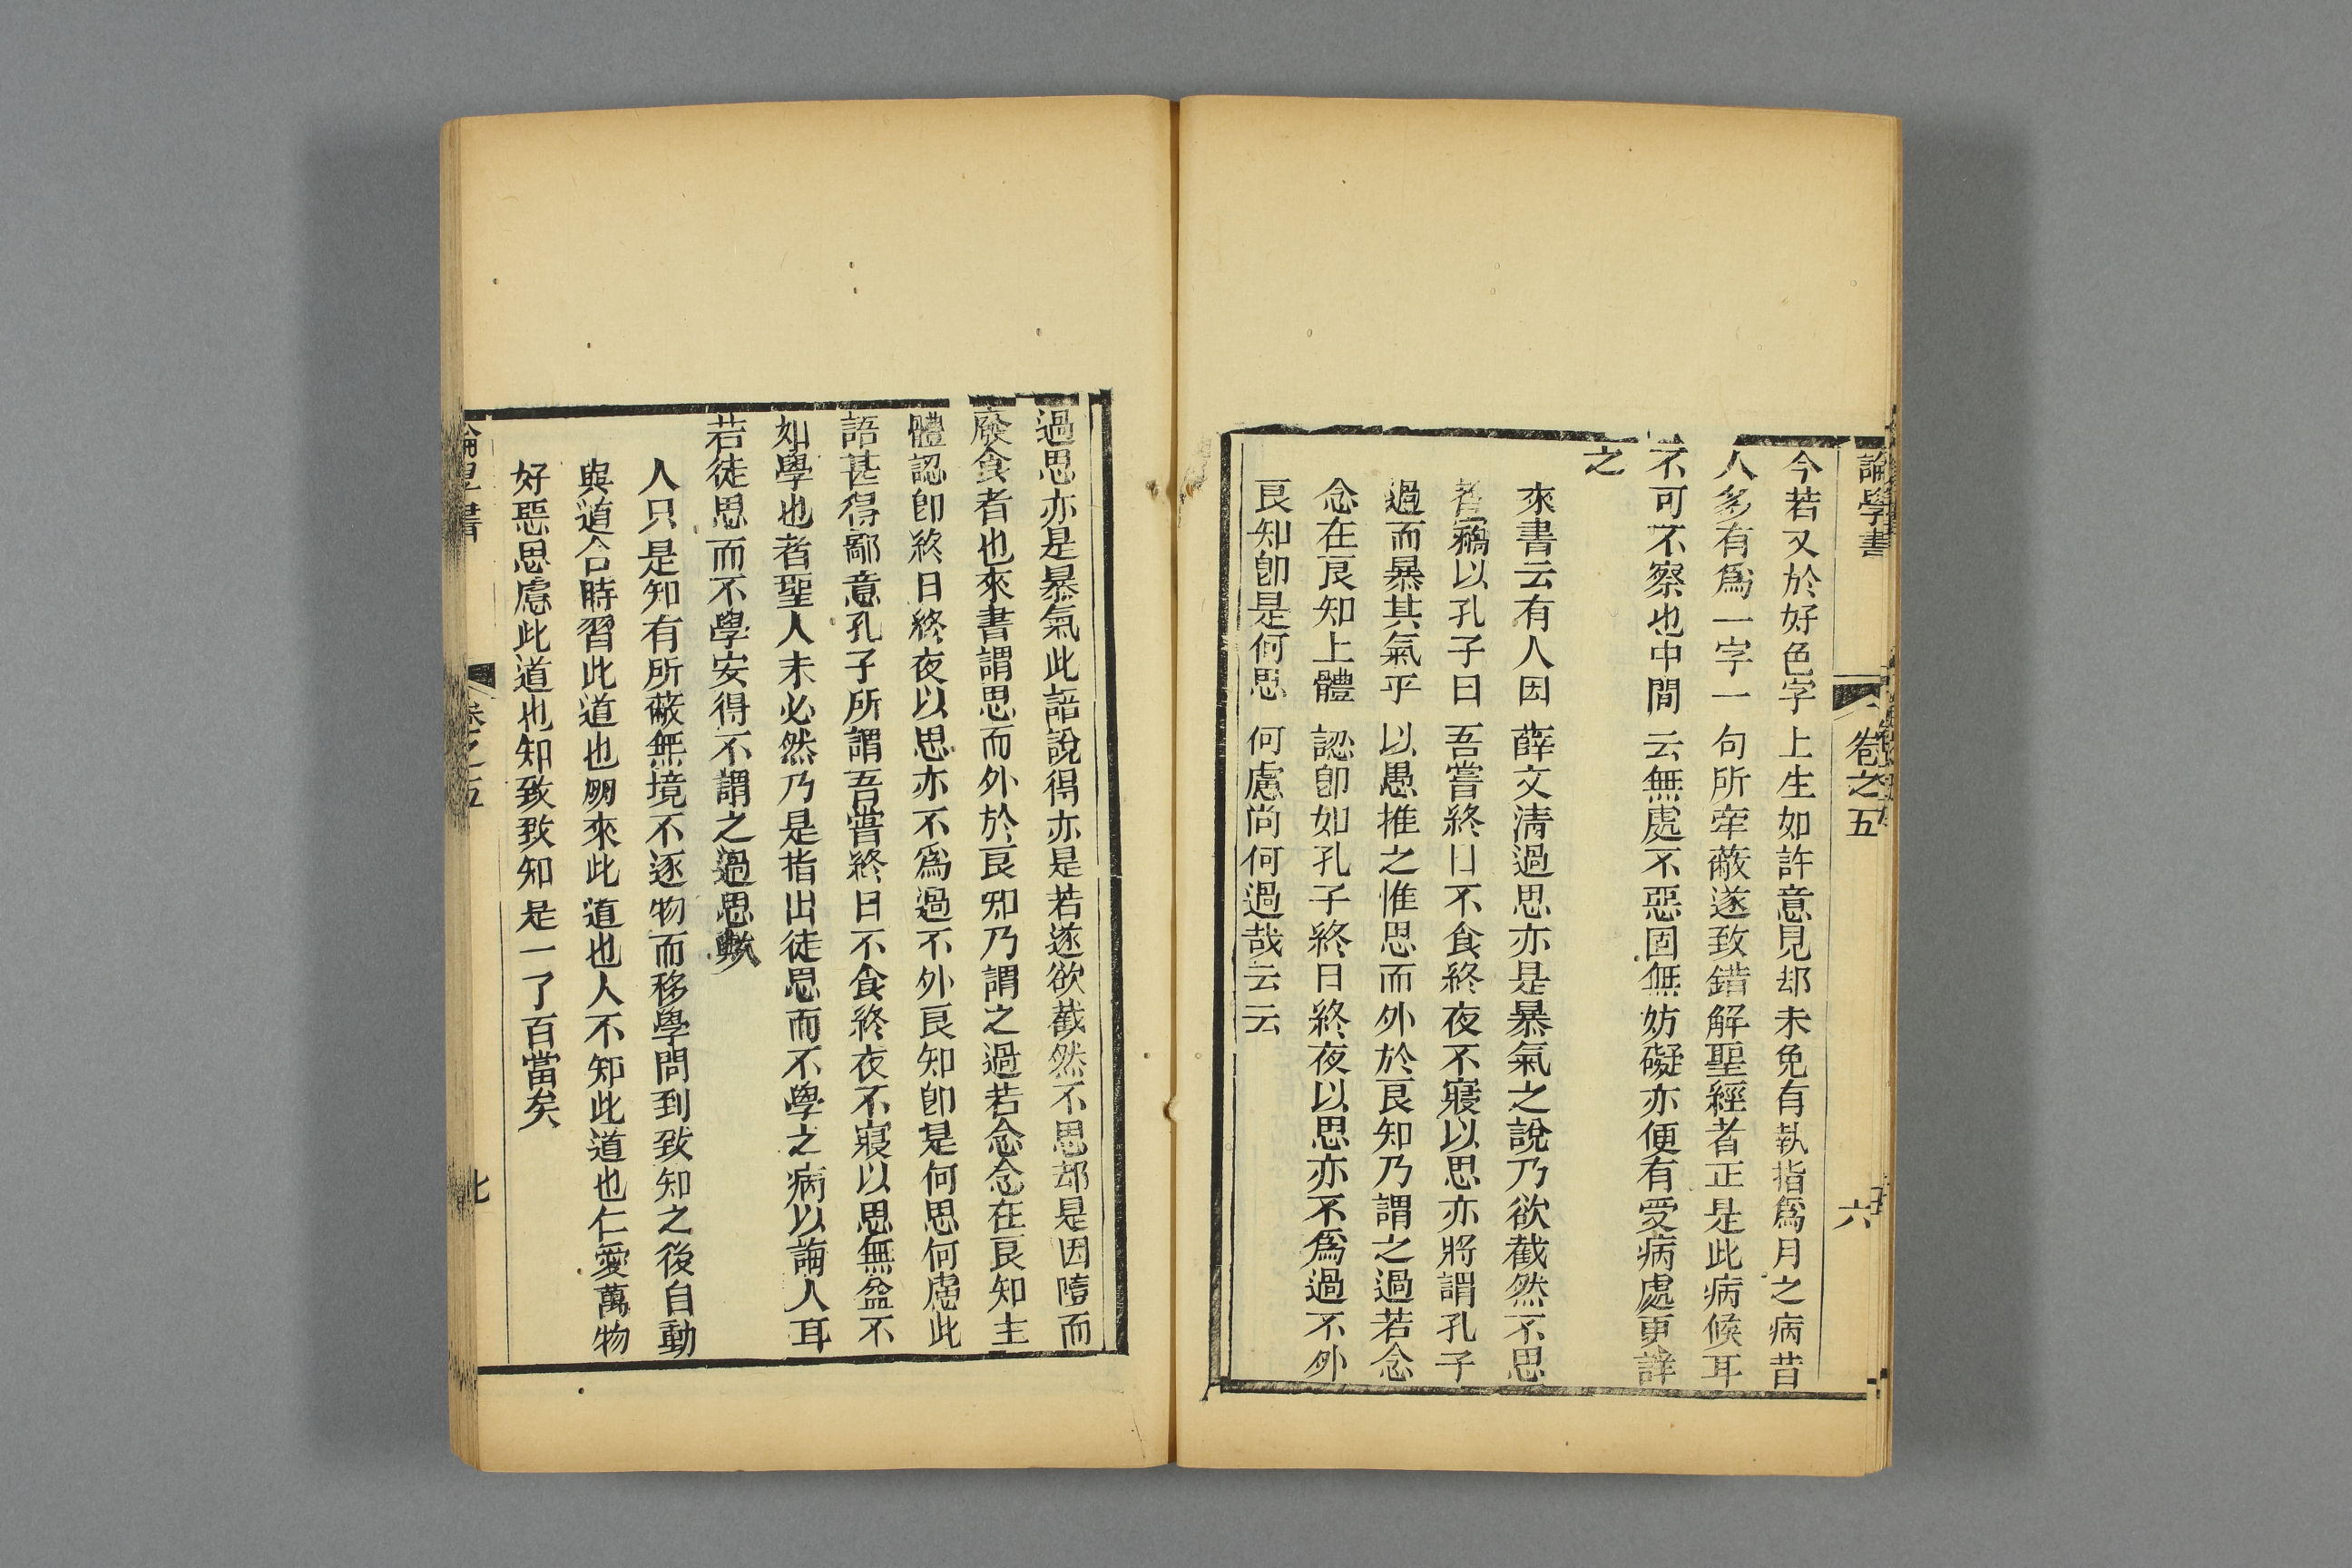 論學書 卷之五 六
今若又於好色字上生如許意見却未免有執指爲月之病昔
人多有爲一字一句所牽蔽遂致錯解聖經者正是此病候耳
不可不察也中間云無處不惡固無妨礙亦便有受病處更詳
之
來書云有人因薛文淸過思亦是暴氣之說乃欲截然不思
者竊以孔子曰吾嘗終日不食終夜不寢以思亦將謂孔子
過而暴其氣乎以愚推之惟思而外於良知乃謂之過若念
念在良知上體認卽如孔子終日終夜以思亦不爲過不外
良知卽是何思何慮尚何過哉云云
過思亦是暴氣此語說得亦是若遂欲截然不思却是因噎而
廢食者也來書謂思而外於良知乃謂之過若念念在良知上
體認卽終日終夜以思亦不爲過不外良知卽是何思何慮此
語甚得鄙意孔子所謂吾嘗終日不食終夜不寢以思無益不
如學也者聖人未必然乃是指出徒思而不學之病以誨人耳
若徒思而不學安得不謂之過思歟
人只是知有所蔽無境不逐物而移學問到致知之後自動
與道合時習此道也朋來此道也人不知此道也仁愛萬物
好惡思慮此道也知致致知是一了百當矣
卷之五